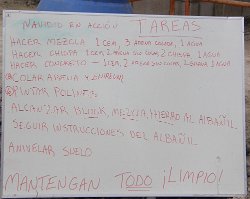 NAVIDAD EN ACCIÓN TAREAS
HACER MEZCLA 1 CEM, 3 ARENA COLADA, 1 AGUA
HACER CHISPA 1 CEM, 2 ARENA SIN COLAR, 2 CHISPA, 1 AGUA
HACER CONCRETO - 1 CEM, 2 ARENA SIN COLAR, 2 GRAVA, 1 AGUA
COLAR ARENA
PINTAR POLINES
ALCANZAR BLOCK, MEZCLA, HIERRO AL ALBAÑIL
SEGUIR INSTRUCCIONES DEL ALBAÑIL
ANIVELAR SUELO
MANTENGAN TODO ¡LIMPIO!